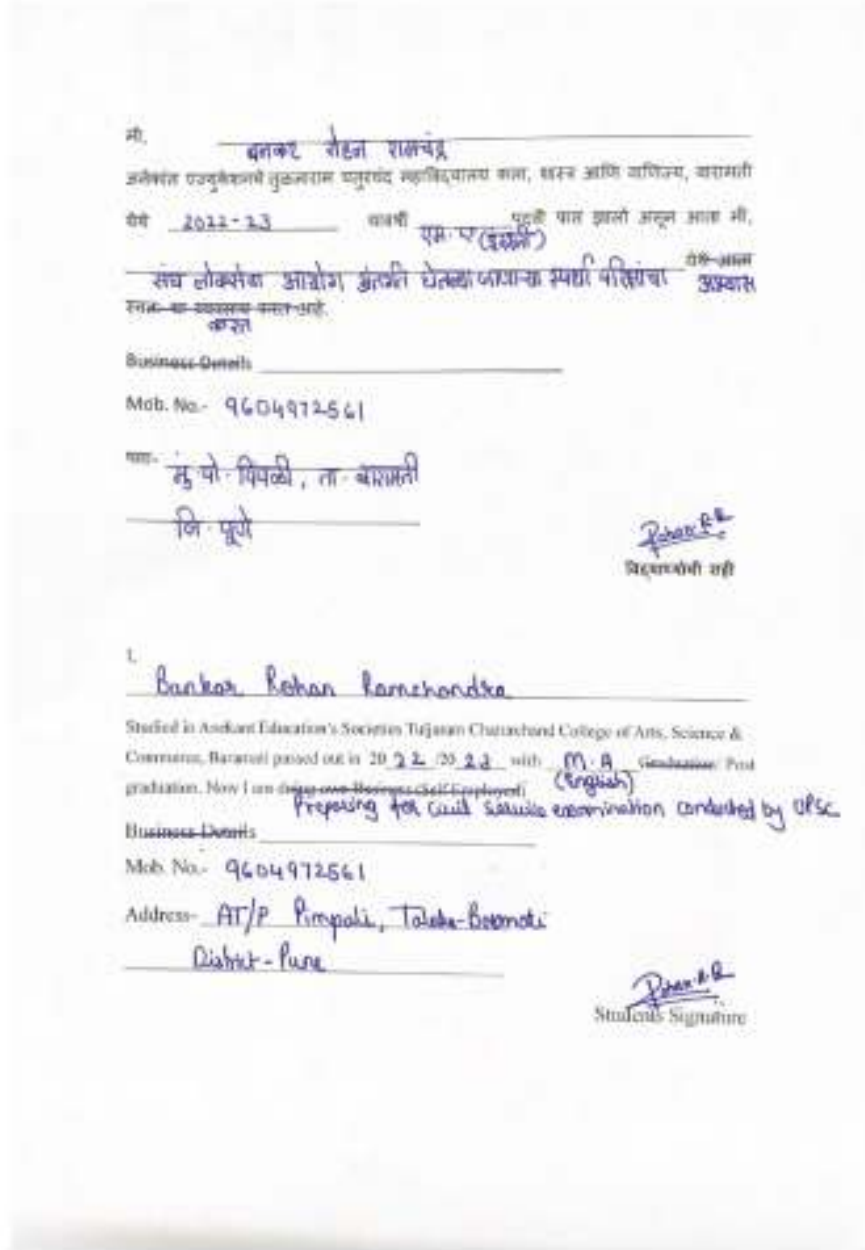 मी,
बनकर रोहन रामचंद्र
अनेकांत एज्युकेशनचे तुळजाराम चतुरचंद महाविद्यालय कला, शास्त्र आणि वाणिज्य, बारामती
येथे 2022-23 यावर्षी एम. ए (इंग्रजी) पदवी पास झालो असून आता मी,
संघ लोकसेवा आयोग अंतर्गत घेतल्या जाणाऱ्या स्पर्धा परिक्षांचा अभ्यास
करत आहे.
Business Details
Mob. No.- 9604972561
पत्ता- मु. पो. पिंपळी, ता- बारामती
जि - पुणे
Rohan R.R
विद्यार्थ्याची सही
I,
Bankar Rohan Ramchandra
Studied in Anekant Education's Societies Tuljaram Chaturchand College of Arts, Science &
Commerce, Baramati passed out in 2022/2023 with M.A Graduation/ Post
(English)
graduation. Now I am doing own Business (Self Employed)
Preparing for Civil Service examination conducted by UPSC
Business Details
Mob. No.- 9604972561
Address- AT/P Pimpali, Taluka-Baramati
District-Pune
Rohan R.R
Students Signature